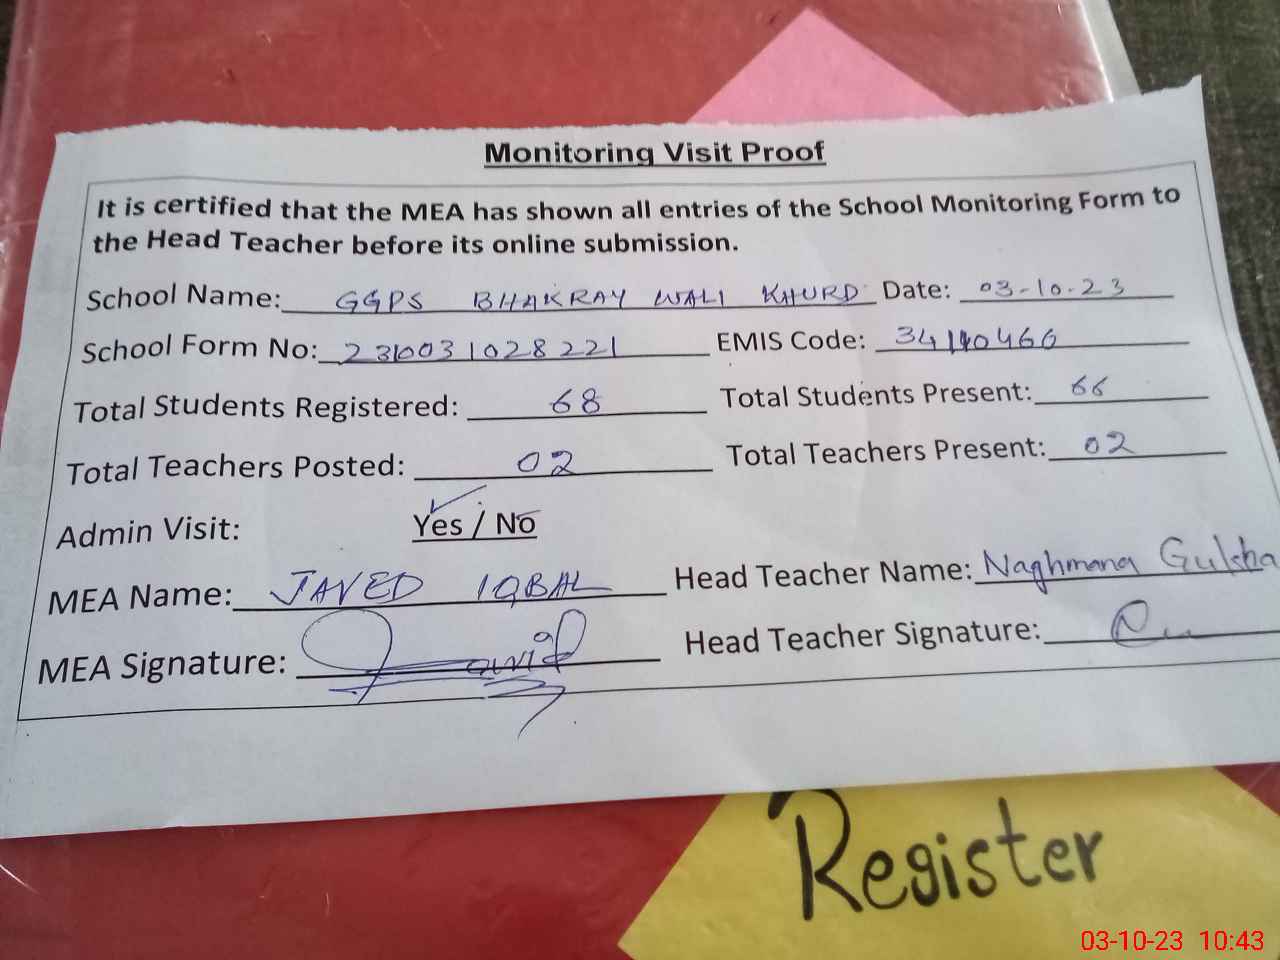 Monitoring Visit Proof
It is certified that the MEA has shown all entries of the School Monitoring Form to
the Head Teacher before its online submission.
School Name: GGPS BHAKRAY WALI KHURD Date: 03-10-23
School Form No: 2310031028221 EMIS Code: 34140466
Total Students Registered: 68 Total Students Present: 66
Total Teachers Posted: 02 Total Teachers Present: 02
Admin Visit: Yes / No
MEA Name: JAVED IQBAL Head Teacher Name: Naghmana Gulsha
MEA Signature: Javid Head Teacher Signature:
Register
03-10-23 10:43